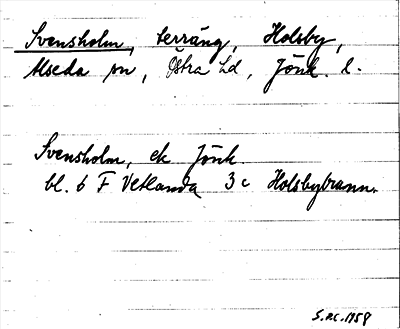 Svensholm, terräng, Holsby,
Alseda sn, Östra hd, Jönk. l.
Svensholm, ek Jönk.
bl. 6 F Vetlanda 3c Holsbybrunn.
S.R.C. 1958